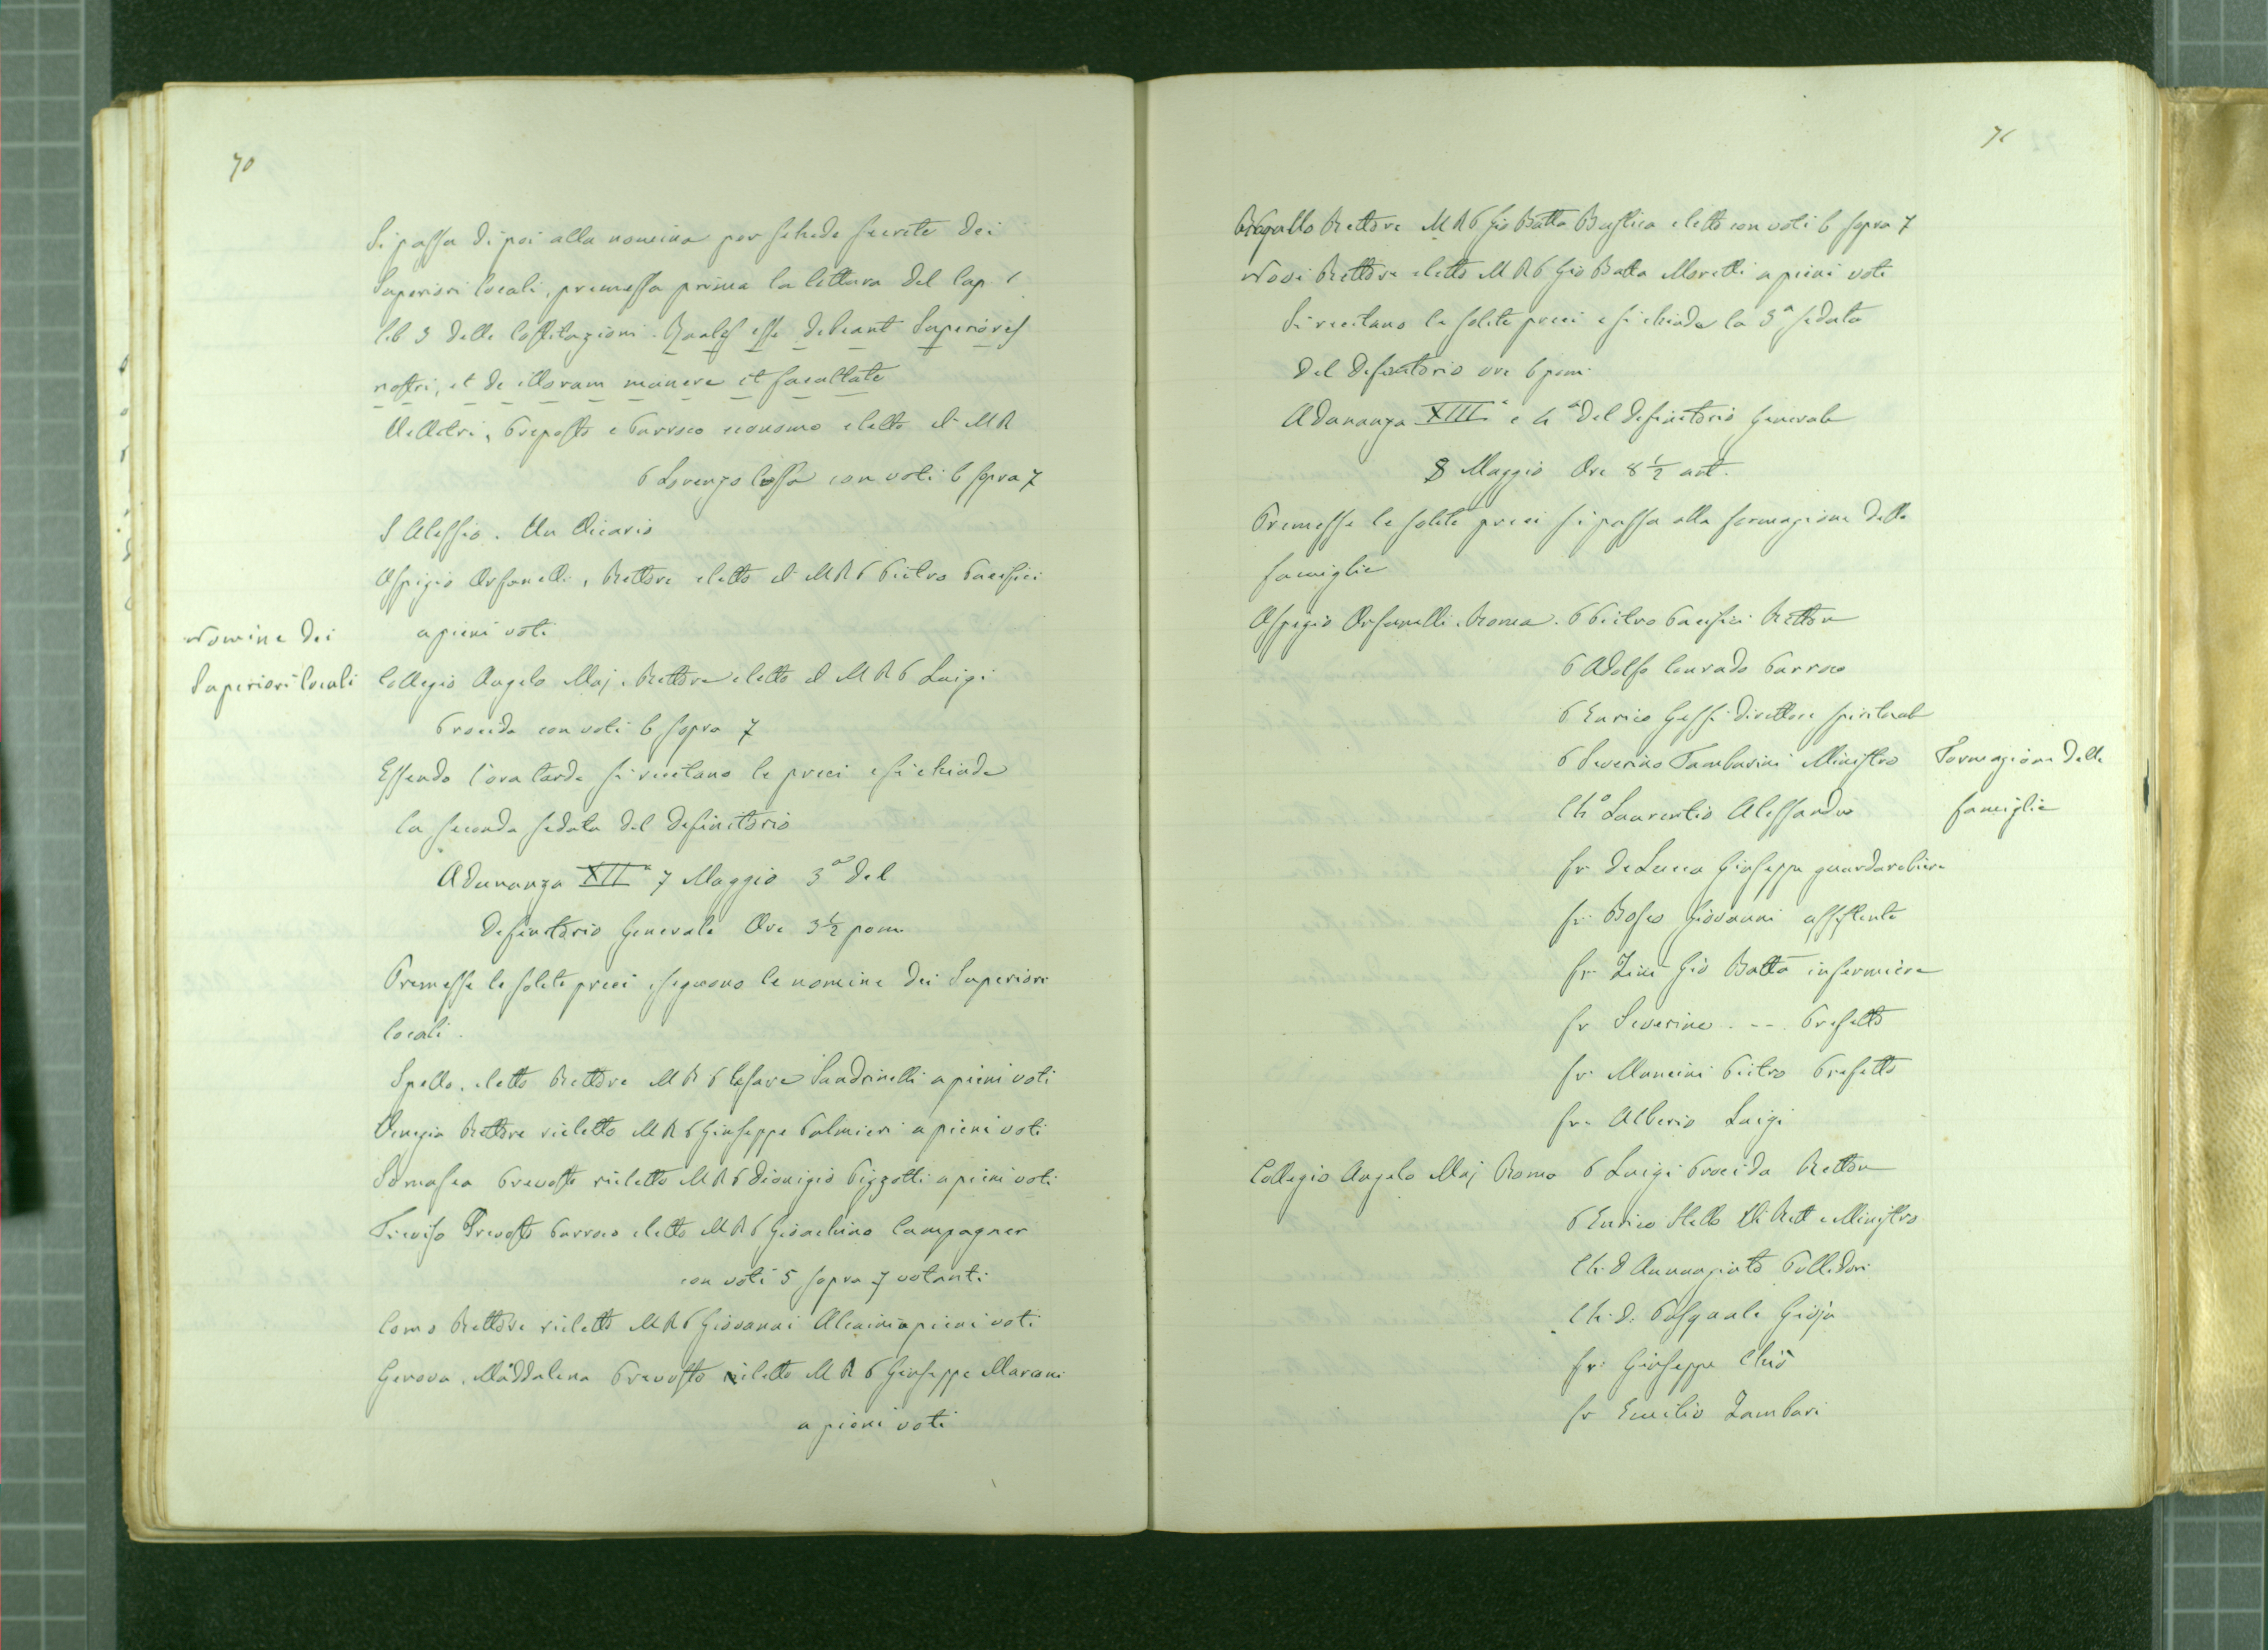 70
Si passa di poi alla nomina per schede secrete dei
Superiori locali, premessa prima la lettura del Cap 1
lib 3 delle Costituzioni. Quales esse debeant Superiores
nostri, et de illorum munere et facultate
Velletri, Preposto e Parroco economo eletto il M R
P Lorenzo Cossa con voti 6 sopra 7
S Alessio. Un Vicario
Ospizio Orfanelli, Rettore eletto il M R P Pietro Pacifici
a pieni voti
Nomine dei
Superiori locali
Collegio Angelo Maj. Rettore eletto il M R P Luigi
Procida con voti 6 sopra 7
Essendo l'ora tarda si recitano le preci e si chiude
la seconda seduta del definitorio
Adunanza XIIª 7 Maggio 3ª del
definitorio Generale Ore 3 1/2 pom.
Premesse le solite preci seguono le nomine dei Superiori
locali.
Spello. eletto Rettore M R P Cesare Sandrinelli a pieni voti
Venezia Rettore rieletto M R P Giuseppe Palmieri a pieni voti
Somasca Prevosto rieletto M R P Dionigio Pizzotti a pieni voti
Treviso Prevosto Parroco eletto M R P Gioachino Campagner
con voti 5 sopra 7 votanti
Como Rettore rieletto M R P Giovanni Alcaini a pieni voti
Genova. Maddalena Prevosto rieletto M R P Giuseppe Marconi
a pieni voti
71
Rapallo Rettore M R P Gio Batta eletto con voti 6 sopra 7
Novi Rettore eletto M R P Gio Batta Moretti a pieni voti
Si recitano le solite preci e si chiude la 3ª seduta
del definitorio ore 6 pom.
Adunanza XIIIª e 4ª del definitorio Generale
8 Maggio Ore 8 1/2 ant.
Premesse le solite preci si passa alla formazione delle
famiglie
Ospizio Orfanelli. Roma. P Pietro Pacifici Rettore
P Adolfo Conrado Parroco
P Enrico Gessi direttore spirituale
P Severino Tamburini Ministro
Formazione delle
famiglie
Ch.º Laurentis Alessandro
fr DeLucca Giuseppe guardarobiere
fr. Bosco Giovanni assistente
fr. Zini Gio Batta infermiere
fr Severino . -- . Prefetto
fr. Mancini Pietro Prefetto
fr. Alberio Luigi
Collegio Angelo Maj Roma P Luigi Procida Rettore
P Enrico Stella Vi Rett e Ministro
Ch. D Annunziato Pollidori
Ch. D. Pasquale Gioja
fr. Giuseppe Chiò
fr Emilio Zambari